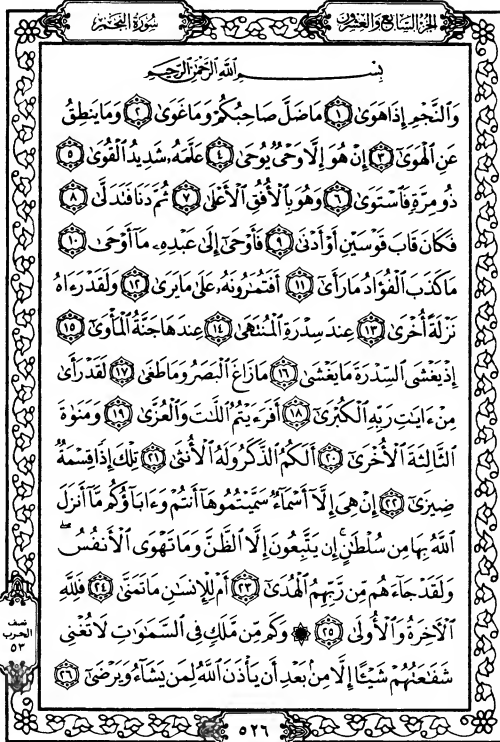 سُورَةُ النَّجْمِ الجُزءُ السَّابِعُ وَالعِشْرُونَ
بِسْمِ ٱللَّهِ ٱلرَّحْمَٰنِ ٱلرَّحِيمِ
وَٱلنَّجْمِ إِذَا هَوَىٰ ١ مَا ضَلَّ صَاحِبُكُمْ وَمَا غَوَىٰ ٢ وَمَا يَنطِقُ
عَنِ ٱلْهَوَىٰٓ ٣ إِنْ هُوَ إِلَّا وَحْىٌ يُوحَىٰ ٤ عَلَّمَهُۥ شَدِيدُ ٱلْقُوَىٰ ٥
ذُو مِرَّةٍ فَٱسْتَوَىٰ ٦ وَهُوَ بِٱلْأُفُقِ ٱلْأَعْلَىٰ ٧ ثُمَّ دَنَا فَتَدَلَّىٰ ٨
فَكَانَ قَابَ قَوْسَيْنِ أَوْ أَدْنَىٰ ٩ فَأَوْحَىٰٓ إِلَىٰ عَبْدِهِۦ مَآ أَوْحَىٰ ١٠
مَا كَذَبَ ٱلْفُؤَادُ مَا رَأَىٰٓ ١١ أَفَتُمَٰرُونَهُۥ عَلَىٰ مَا يَرَىٰ ١٢ وَلَقَدْ رَءَاهُ
نَزْلَةً أُخْرَىٰ ١٣ عِندَ سِدْرَةِ ٱلْمُنتَهَىٰ ١٤ عِندَهَا جَنَّةُ ٱلْمَأْوَىٰٓ ١٥
إِذْ يَغْشَى ٱلسِّدْرَةَ مَا يَغْشَىٰ ١٦ مَا زَاغَ ٱلْبَصَرُ وَمَا طَغَىٰ ١٧ لَقَدْ رَأَىٰ
مِنْ ءَايَٰتِ رَبِّهِ ٱلْكُبْرَىٰٓ ١٨ أَفَرَءَيْتُمُ ٱللَّٰتَ وَٱلْعُزَّىٰ ١٩ وَمَنَوٰةَ
ٱلثَّالِثَةَ ٱلْأُخْرَىٰٓ ٢٠ أَلَكُمُ ٱلذَّكَرُ وَلَهُ ٱلْأُنثَىٰ ٢١ تِلْكَ إِذًا قِسْمَةٌ
ضِيزَىٰٓ ٢٢ إِنْ هِىَ إِلَّآ أَسْمَآءٌ سَمَّيْتُمُوهَآ أَنتُمْ وَءَابَآؤُكُم مَّآ أَنزَلَ
ٱللَّهُ بِهَا مِن سُلْطَٰنٍ ۚ إِن يَتَّبِعُونَ إِلَّا ٱلظَّنَّ وَمَا تَهْوَى ٱلْأَنفُسُ ۖ
وَلَقَدْ جَآءَهُم مِّن رَّبِّهِمُ ٱلْهُدَىٰٓ ٢٣ أَمْ لِلْإِنسَٰنِ مَا تَمَنَّىٰ ٢٤ فَلِلَّهِ
ٱلْءَاخِرَةُ وَٱلْأُولَىٰ ٢٥ ۞ وَكَم مِّن مَّلَكٍ فِى ٱلسَّمَٰوَٰتِ لَا تُغْنِى
شَفَٰعَتُهُمْ شَيْـًٔا إِلَّا مِنۢ بَعْدِ أَن يَأْذَنَ ٱللَّهُ لِمَن يَشَآءُ وَيَرْضَىٰٓ ٢٦
نصف
الحزب
٥٣
٥٢٦